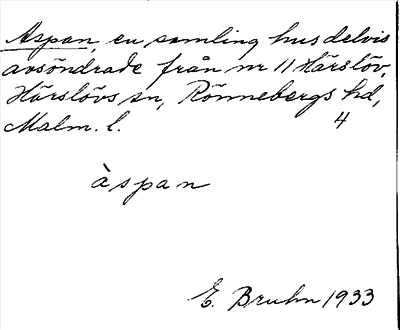 Aspan, en samling hus delvis
avsöndrade från nr 11 Härslöv,
Härslövs sn, Rönnebergs hd,
Malm. l. 4
àspan
E. Bruhn 1933